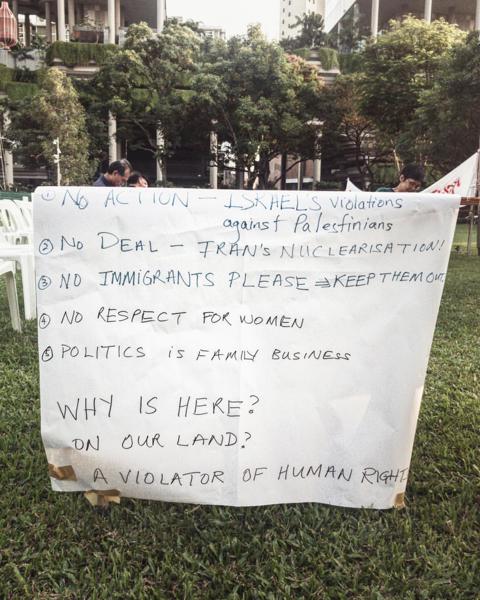 ① NO ACTION – ISRAEL'S violations
against Palestinians
② NO DEAL – IRAN'S NUCLEARISATION!
③ NO IMMIGRANTS PLEASE ⇒ KEEP THEM OUT
④ NO RESPECT FOR WOMEN
⑤ POLITICS is FAMILY BUSINESS
WHY IS HERE?
ON OUR LAND?
A VIOLATOR OF HUMAN RIGHT